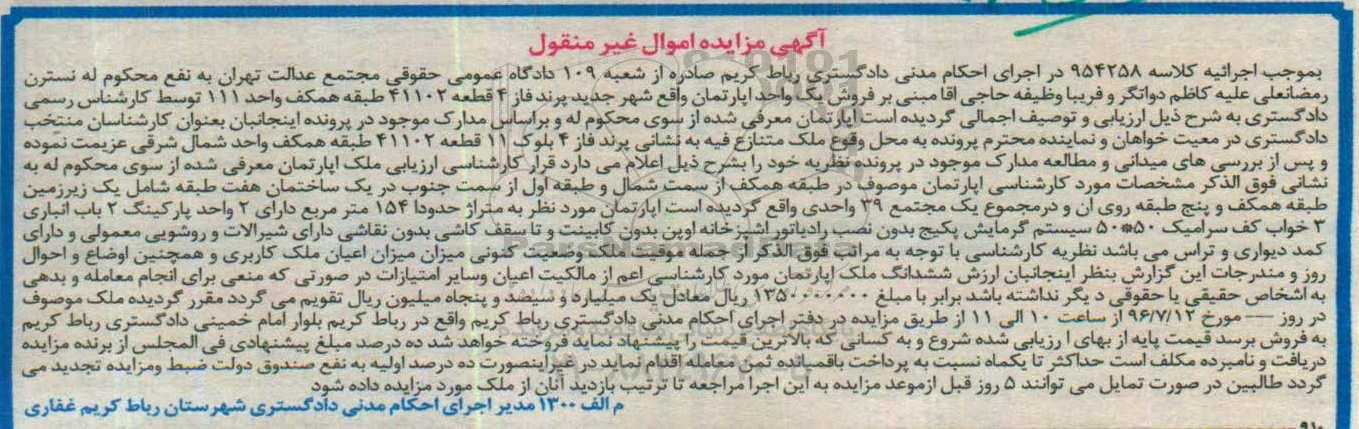 آگهی مزایده اموال غیر منقول
بموجب اجرائیه کلاسه ۹۵۴۲۵۸ در اجرای احکام مدنی دادگستری رباط کریم صادره از شعبه ۱۰۹ دادگاه عمومی حقوقی مجتمع عدالت تهران به نفع محکوم له نسترن
رمضانعلی علیه کاظم دواتگر و فریبا وظیفه حاجی اقا مبنی بر فروش یک واحد اپارتمان واقع شهر جدید پرند فاز ۴ قطعه ۴۱۱۰۲ طبقه همکف واحد ۱۱۱ توسط کارشناس رسمی
دادگستری به شرح ذیل ارزیابی و توصیف اجمالی گردیده است اپارتمان معرفی شده از سوی محکوم له و براساس مدارک موجود در پرونده اینجانبان بعنوان کارشناسان منتخب
دادگستری در معیت خواهان و نماینده محترم پرونده به محل وقوع ملک متنازع فیه به نشانی پرند فاز ۴ بلوک ۱۱ قطعه ۴۱۱۰۲ طبقه همکف واحد شمال شرقی عزیمت نموده
و پس از بررسی های میدانی و مطالعه مدارک موجود در پرونده نظریه خود را بشرح ذیل اعلام می دارد قرار کارشناسی ارزیابی ملک اپارتمان معرفی شده از سوی محکوم له به
نشانی فوق الذکر مشخصات مورد کارشناسی اپارتمان موصوف در طبقه همکف از سمت شمال و طبقه اول از سمت جنوب در یک ساختمان هفت طبقه شامل یک زیرزمین
طبقه همکف و پنج طبقه روی ان و درمجموع یک مجتمع ۳۹ واحدی واقع گردیده است اپارتمان مورد نظر به متراژ حدودا ۱۵۴ متر مربع دارای ۲ واحد پارکینگ ۲ باب انباری
۳ خواب کف سرامیک ۵۰*۵۰ سیستم گرمایش پکیج بدون نصب رادیاتور اشپزخانه اوپن بدون کابینت و تا سقف کاشی بدون نقاشی دارای شیرالات و روشویی معمولی و دارای
کمد دیواری و تراس می باشد نظریه کارشناسی با توجه به مراتب فوق الذکر از جمله موقیت ملک وضعیت کنونی میزان میزان اعیان ملک کاربری و همچنین اوضاع و احوال
روز و مندرجات این گزارش بنظر اینجانبان ارزش ششدانگ ملک اپارتمان مورد کارشناسی اعم از مالکیت اعیان وسایر امتیازات در صورتی که منعی برای انجام معامله و بدهی
به اشخاص حقیقی یا حقوقی د یگر نداشته باشد برابر با مبلغ ۱۳۵۰۰۰۰۰۰۰ ریال معادل یک میلیارد و سیصد و پنجاه میلیون ریال تقویم می گردد مقرر گردیده ملک موصوف
در روز ---- مورخ ۹۶/۷/۱۲ از ساعت ۱۰ الی ۱۱ از طریق مزایده در دفتر اجرای احکام مدنی دادگستری رباط کریم واقع در رباط کریم بلوار امام خمینی دادگستری رباط کریم
به فروش برسد قیمت پایه از بهای ا رزیابی شده شروع و به کسانی که بالاترین قیمت را پیشنهاد نماید فروخته خواهد شد ده درصد مبلغ پیشنهادی فی المجلس از برنده مزایده
دریافت و نامبرده مکلف است حداکثر تا یکماه نسبت به پرداخت باقیمانده ثمن معامله اقدام نماید در غیراینصورت ده درصد اولیه به نفع صندوق دولت ضبط ومزایده تجدید می
گردد طالبین در صورت تمایل می توانند ۵ روز قبل ازموعد مزایده به این اجرا مراجعه تا ترتیب بازدید آنان از ملک مورد مزایده داده شود
م الف ۱۳۰۰ مدیر اجرای احکام مدنی دادگستری شهرستان رباط کریم غفاری
۹۱۰
ParsNamadData